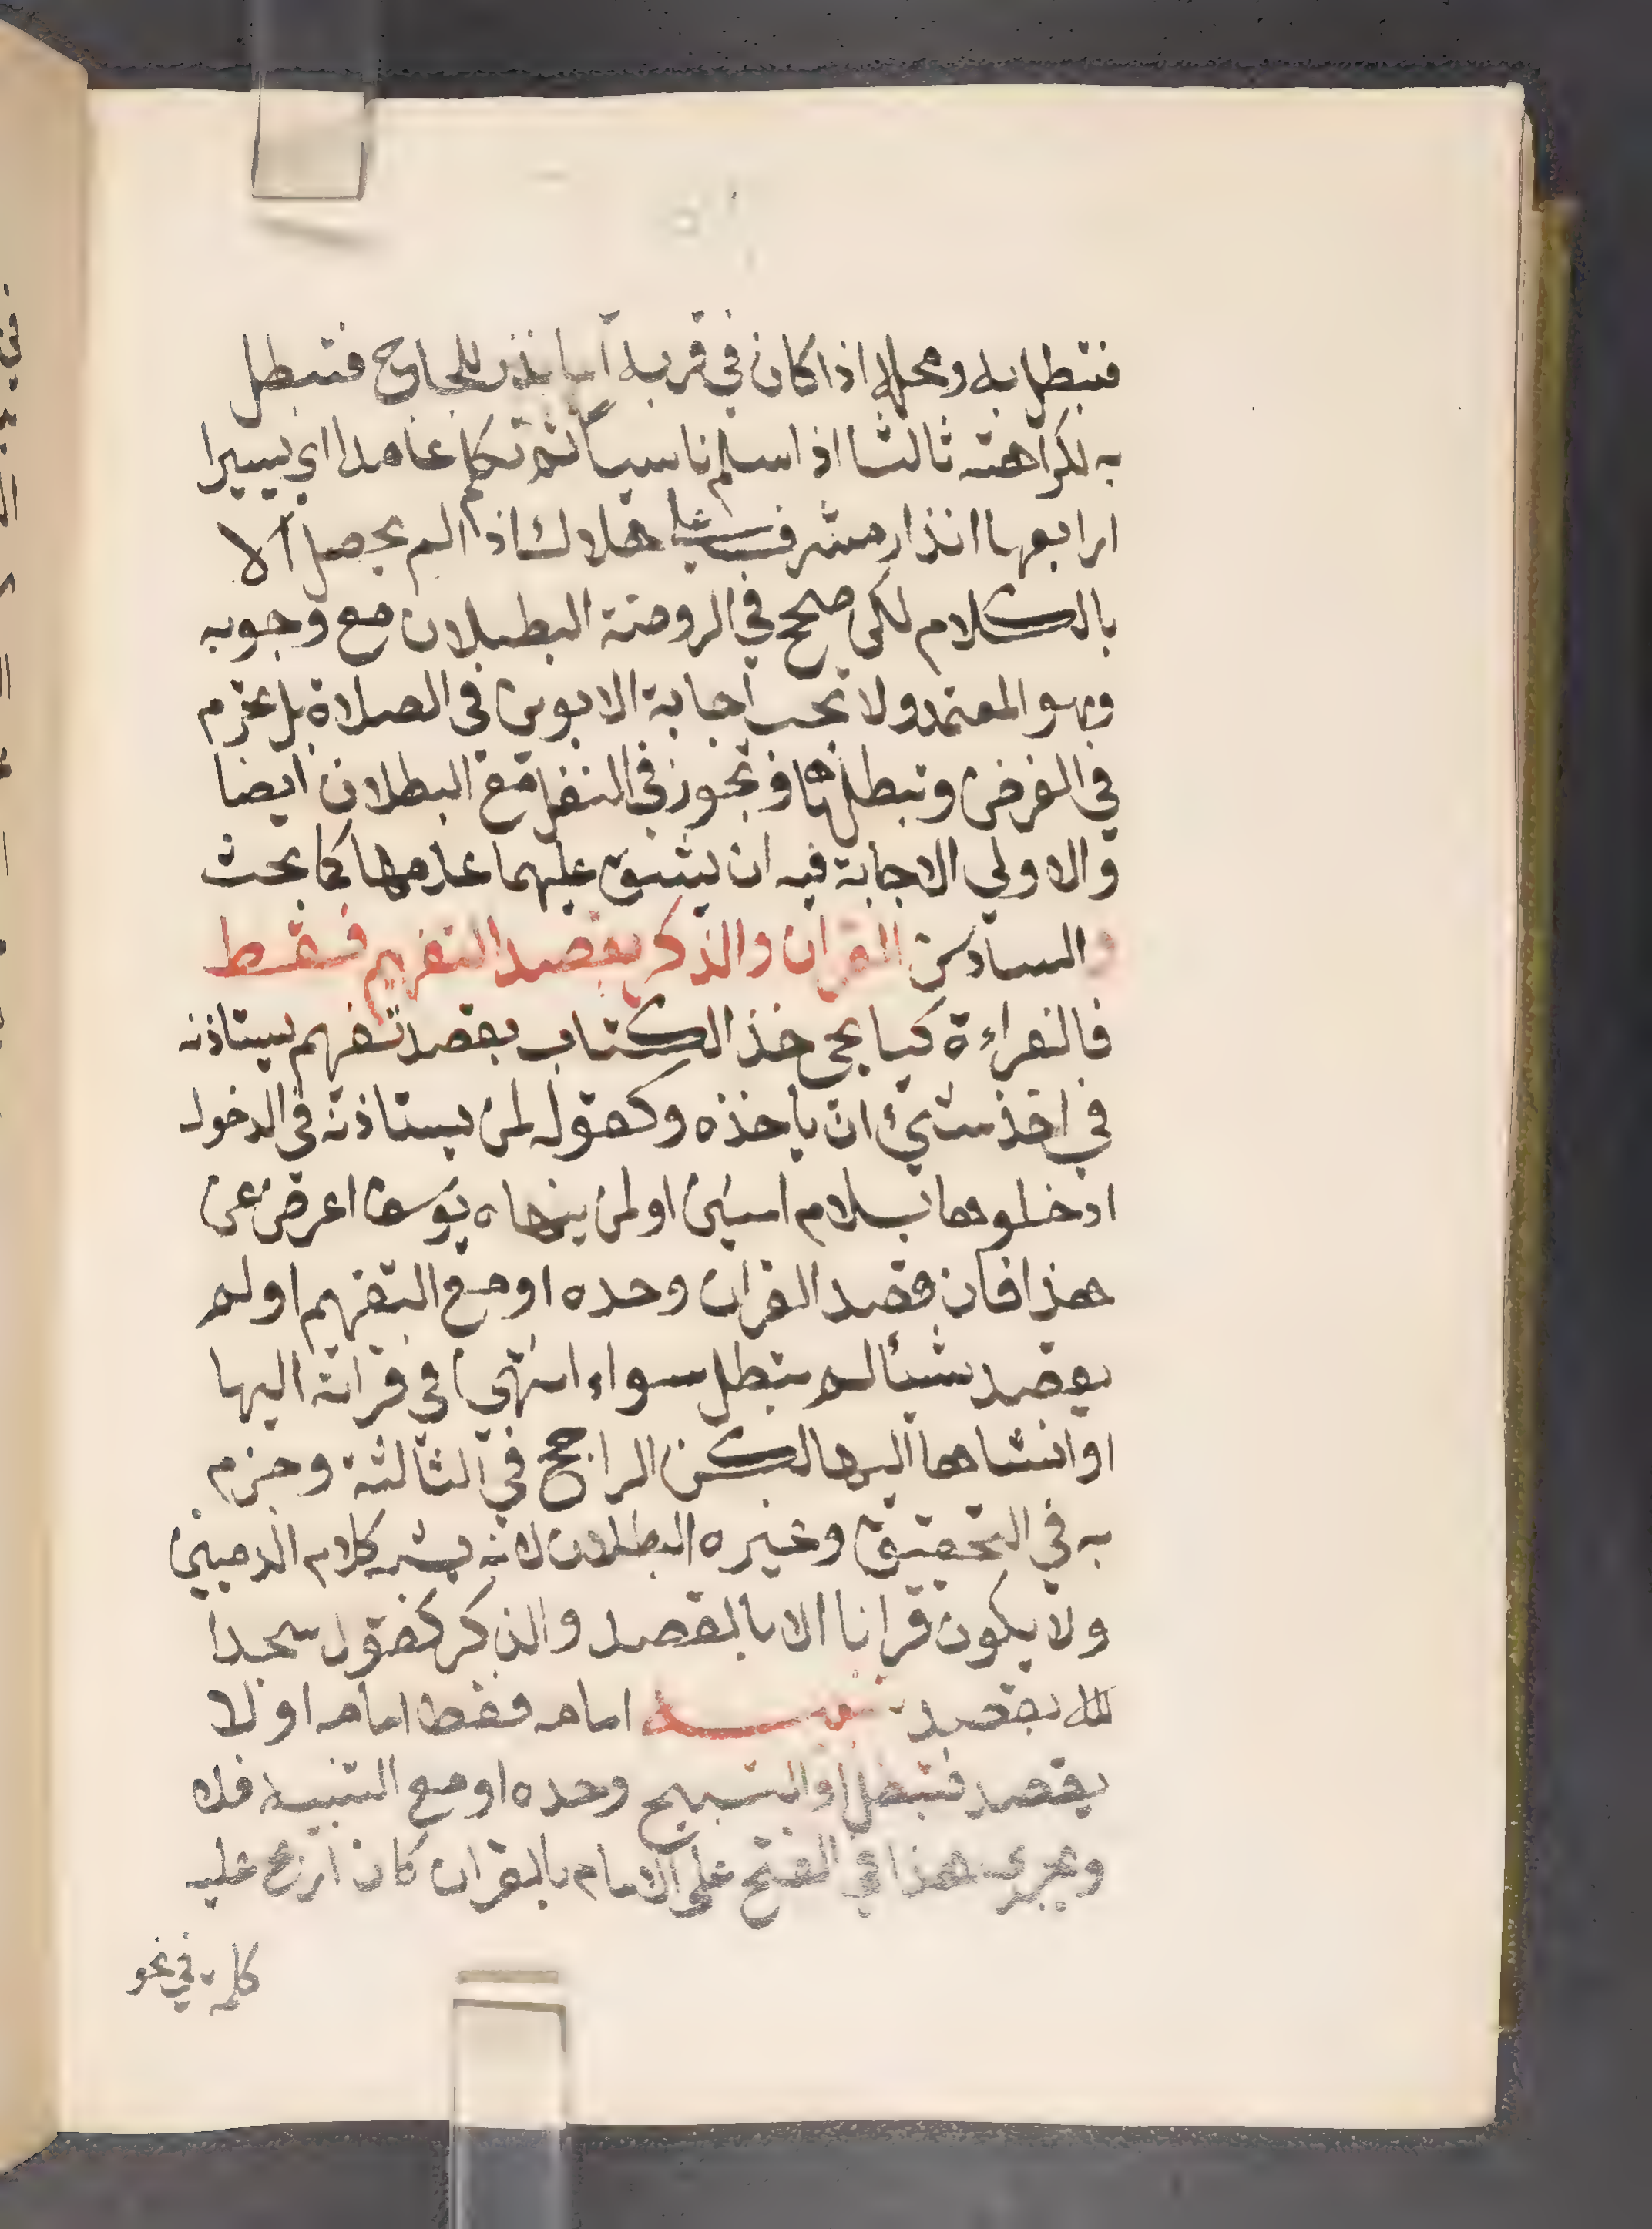 فتبطل به ومحله اذا كان في قربة اما نذر اللجاج فتبطل
به لكراهته ثالثا اذا سلم ناسيا ثم تكلم عامدا اي يسيرا
رابعها انذار مشرف على هلاك اذا لم يحصل الا
بالكلام لكن صحح في الروضة البطلان مع وجوبه
وهو المعتمد ولا تجب اجابة الابوين في الصلاة بل تحرم
في الفرض وتبطل بها وتجوز في النفل مع البطلان ايضا
والاولي الاجابة فيه ان يشق عليهما عدمها كما بحث
والسادس القران والذكر بقصد التفهيم فقط
فالقراءة كيا يحي خذ الكتاب بقصد تفهم يستاذنه
في اخذ شيئ ان ياخذه وكقوله لمن يستاذنه في الدخول
ادخلوها بسلام امنين او لمن ينهاه يوسف اعرض عن
هذا فان قصد القران وحده او مع التفهيم او لم
يقصد شيئا لم تبطل سواء انتهي في قراته اليها
او انشاها اليها لكن الراجح في الثالثة وجزم
به في التحقيق وغيره البطلان لانه يشبه كلام الادميين
ولا يكون قرانا الا بالقصد والذكر كقول سبحان
الله بقصد تنبيه امامه فقط امامه او لا
يقصد فتبطل او التسبيح وحده او مع التنبيه فلا
ويجري هذا في الفتح على الامام بالقران كان ارتج عليه
كلمة في نحو